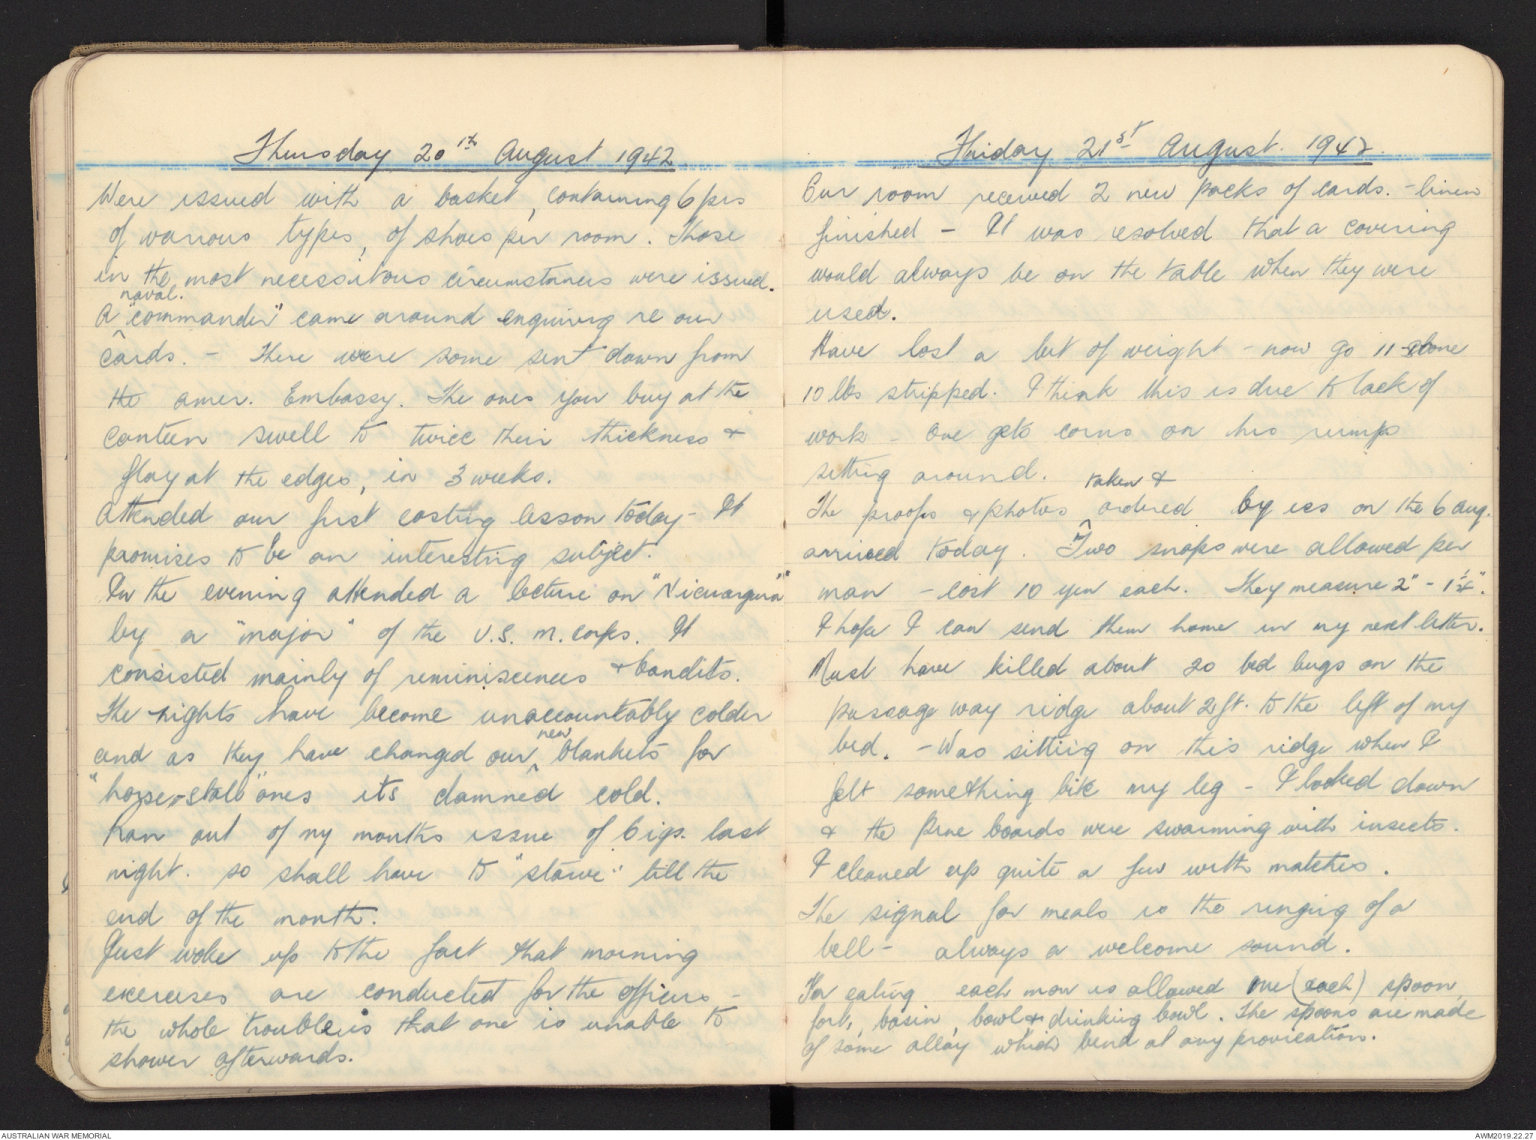 Thursday 20th August 1942
Were issued with a basket, containing 6 prs
of various types, of shoes per room. Those
in the most necessitous circumstances were issued.
naval.
A "commander" came around enquiring re our
cards. - There were some sent down from
the amer. Embassy. The ones you buy at the
canteen swell to twice their thickness &
flay at the edges, in 3 weeks.
Attended our first costing lesson today - It
promises to be an interesting subject.
In the evening attended a lecture on "Nicuargura"
by a "major" of the U.S. M. Corps. It
consisted mainly of reminiscences & bandits.
The nights have become unaccountably colder
new
and as they have changed our blankets for
"horse-stall" ones its damned cold.
Ran out of my months issue of Cigs. last
night. so shall have to "starve" till the
end of the month.
Just woke up to the fact that morning
exercises are conducted for the officers -
the whole trouble is that one is unable to
shower afterwards.
Friday 21st August. 1942.
Our room received 2 new packs of cards. - linen
finished - It was resolved that a covering
would always be on the table when they were
used.
Have lost a bit of weight - now go 11 stone
10 lbs stripped. I think this is due to lack of
work - one gets corns on his rump
sitting around.
taken &
The proofs & photos ordered by us on the 6 Aug.
arrived today. Two snaps were allowed per
man - cost 10 yen each. They measure 2" - 1¼".
I hope I can send them home in my next letter.
Must have killed about 20 bed bugs on the
passage way ridge about 2ft. to the left of my
bed. - Was sitting on this ridge when I
felt something bite my leg - I looked down
& the pine boards were swarming with insects.
I cleaned up quite a few with matches.
The signal for meals is the ringing of a
bell - always a welcome sound.
For eating each man is allowed one (each) spoon
fork, basin, bowl & drinking bowl. The spoons are made
of some alloy which bend at any provication.
AUSTRALIAN WAR MEMORIAL
AWM2019.22.27